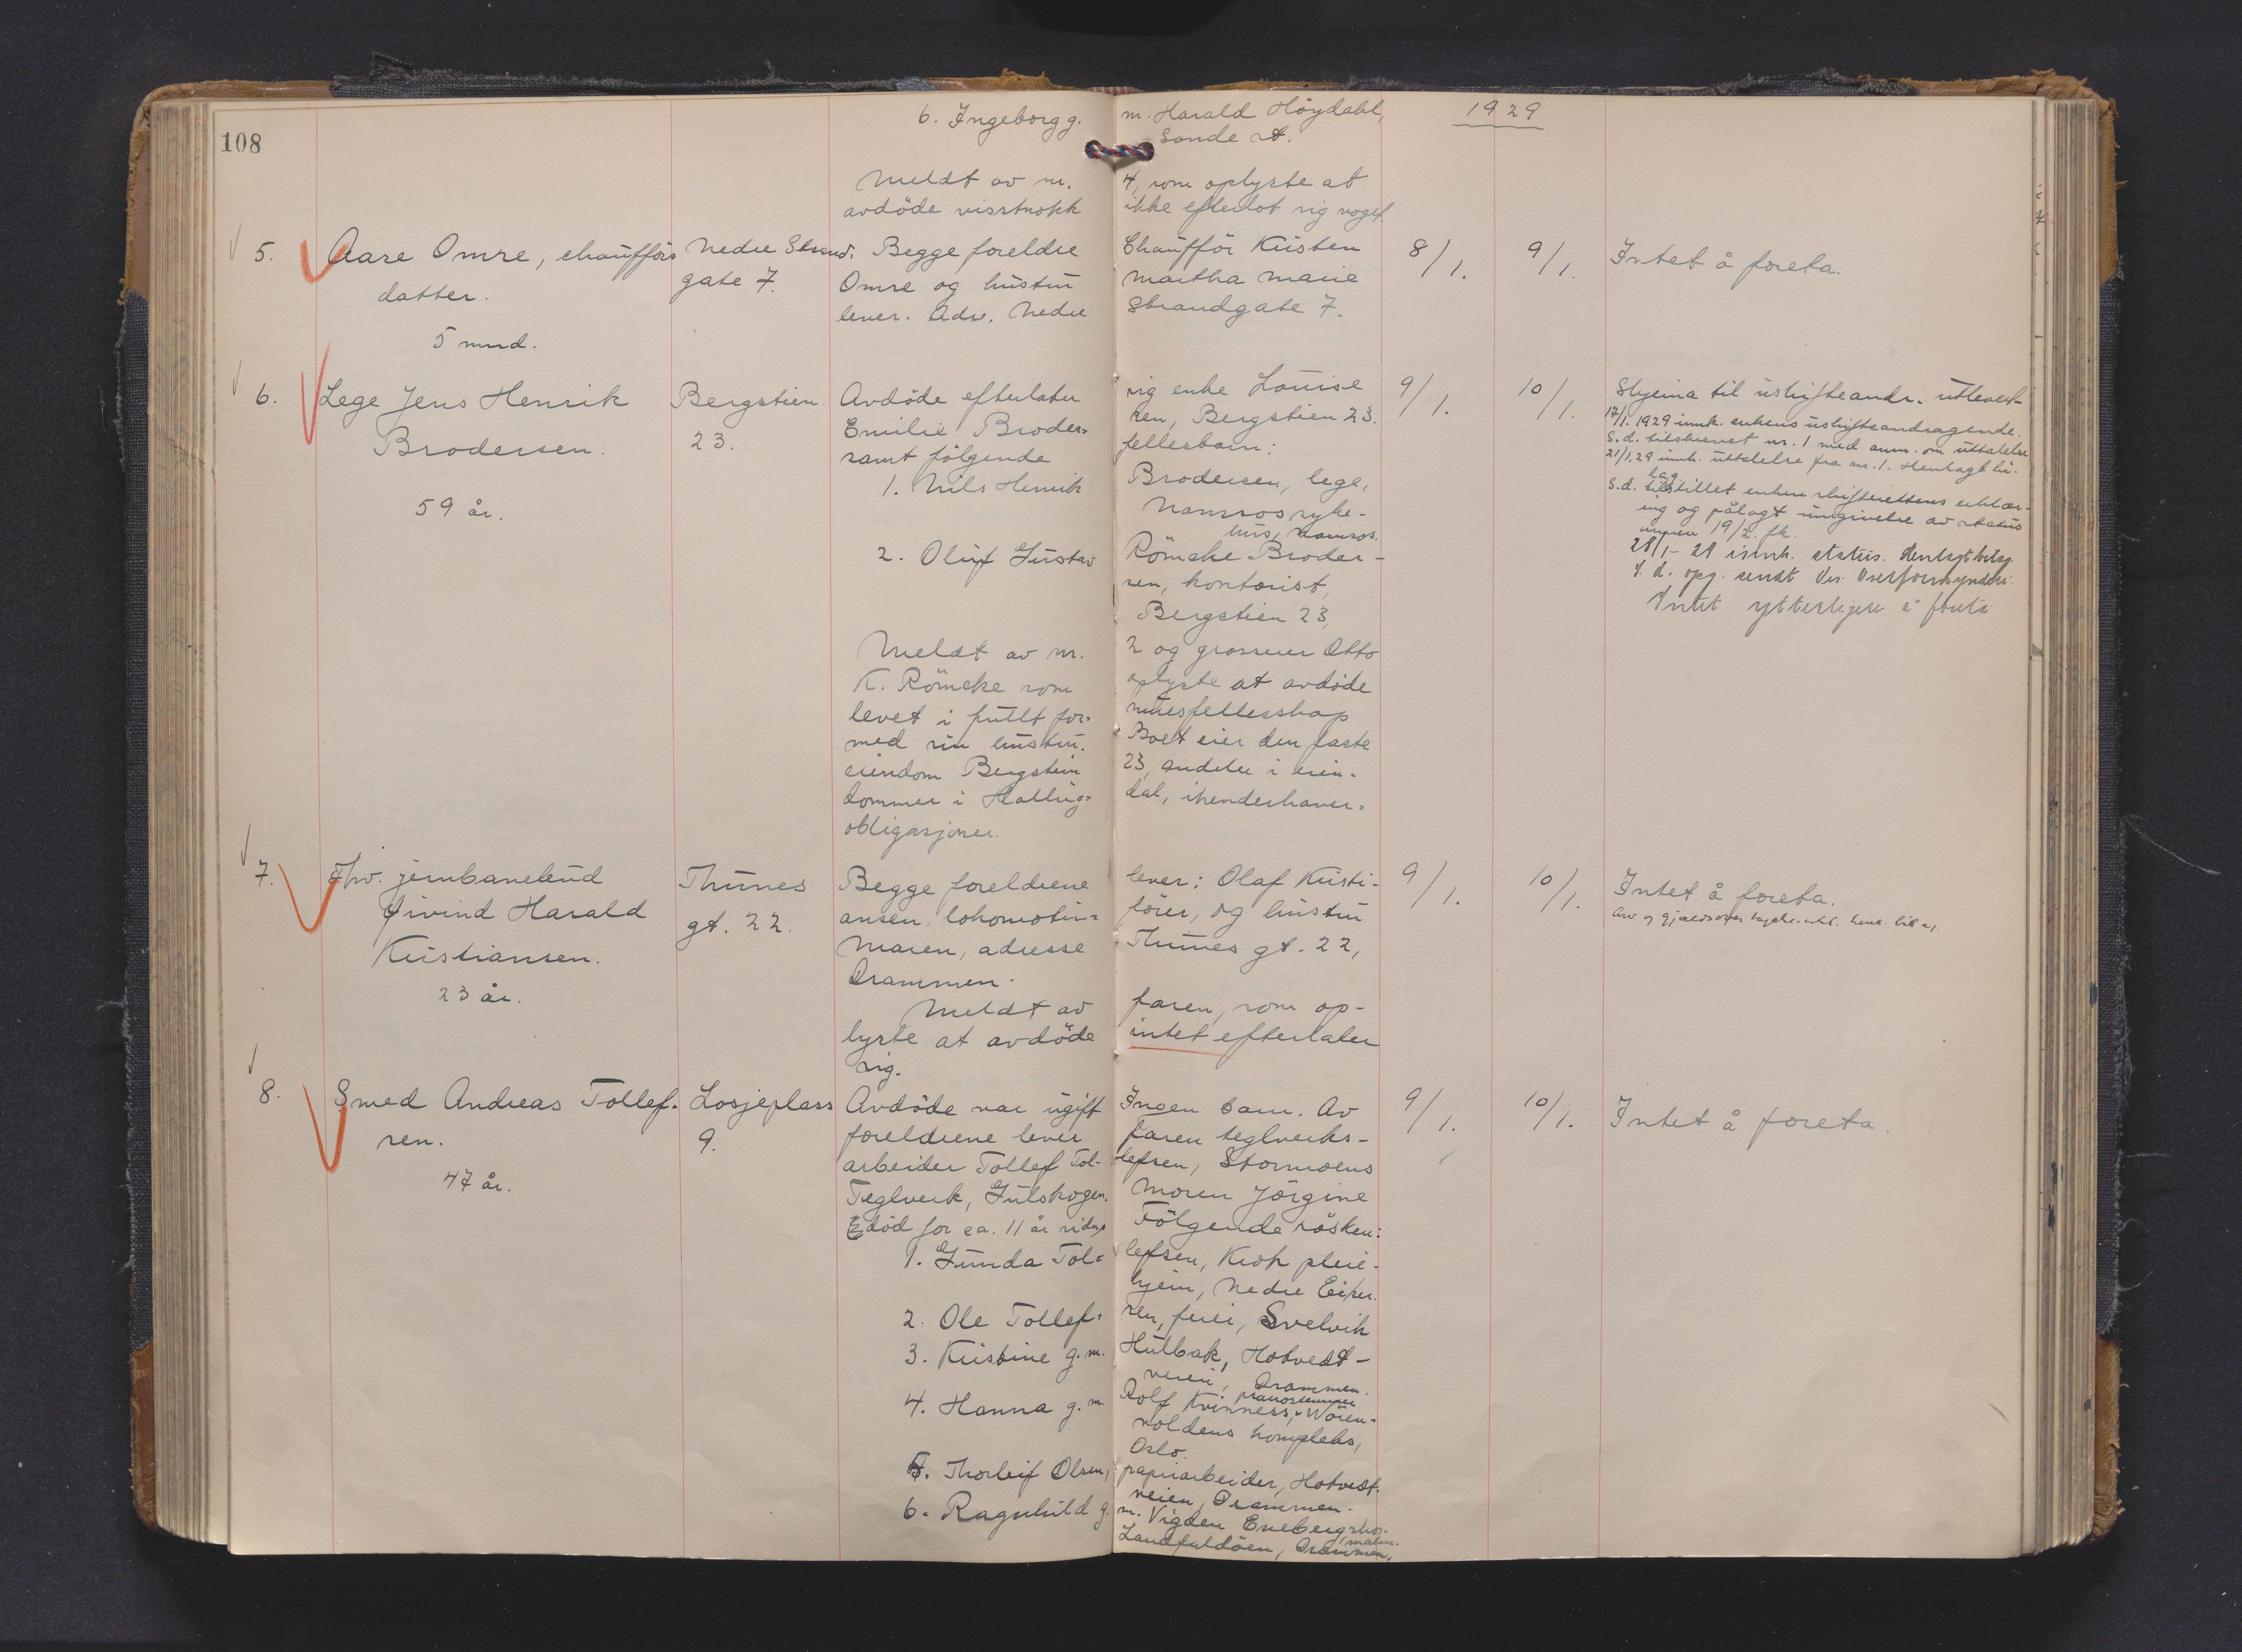 108
6. Ingeborg g. m. Harald Höydahl,
Sande st.
1929
Meldt av nr. 4, som oplyste at
avdöde visstnokk ikke efterlot sig noget.
5. Aase Omre, chaufförs
datter.
5 mnd.
Nedre Strand-
gate 7.
Begge foreldre Chaufför Kristen
Omre og hustru Martha Marie
lever. Adr. Nedre Strandgate 7.
8/1. 9/1. Intet å foreta.
6. Lege Jens Henrik
Brodersen.
59 år.
Bergstien
23.
Avdöde efterlater sig enke Louise
Emilie Broder- sen, Bergstien 23.
samt fölgende fellesbarn:
1. Nils Henrik Brodersen, lege,
Namsos syke-
hus, Namsos.
2. Oluf Gustav Römcke Broder-
sen, kontorist,
Bergstien 23,
Meldt av nr. 2 og grosserer Otto
K. Römcke som oplyste at avdöde
levet i fullt for- muesfellesskap
med sin hustru. Boet eier den faste
eiendom Bergstien 23, andeler i eien-
dommer i Halling- dal, ihenderhaver-
obligasjoner.
9/1. 10/1. Skjema til uskifteandr. utlevert
17/1. 1929 innk. enkens uskifteandragende.
S.d. tilskrevet nr. 1 med anm. om uttalelse
21/1.29 innk. uttalelse fra nr. 1. Henlagt bi-
lag
S.d. tilstillet enken skifterettens erklær-
ing og pålagt inngivelse av status
innen 19/2. fk.
28/1- 29 innk. status. Henlagt bilag.
S. d. opg. sendt Dr. Overformynderi.
Intet ytterligere å foreta
7. Fhv. jernbanelærd
Øivind Harald
Kristiansen.
23 år.
Thunes
gt. 22.
Begge foreldrene lever: Olaf Kristi-
ansen, lokomotiv- förer, og hustru
Maren, adresse Thunes gt. 22,
Drammen.
Meldt av faren, som op-
lyste at avdöde intet efterlater
sig.
9/1. 10/1. Intet å foreta.
8. Smed Andreas Tollef-
sen.
47 år.
Losjeplass
9.
Avdöde var ugift Ingen barn. Av
foreldrene lever faren teglverks-
arbeider Tollef Tol- lefsen, Stormoens
Teglverk, Gulskogen. Moren Jörgine
död for ca. 11 år siden Fölgende sösken:
1. Gunda Tol- lefsen, Krok pleie-
hjem, Nedre Eiker.
2. Ole Tollef- sen, feier, Svelvik
3. Kristine g.m. Hulbak, Hotvedt-
veien, Drammen.
pianostemmer
4. Hanna g. m. Rolf Kvinness, Woien-
voldens kompleks,
Oslo.
5. Thorleif Olsen, papirarbeider, Hotvedt-
veien, Drammen.
6. Ragnhild g. m. Vigden Eneberg, skos-
maker.
Landfaldöen, Drammen.